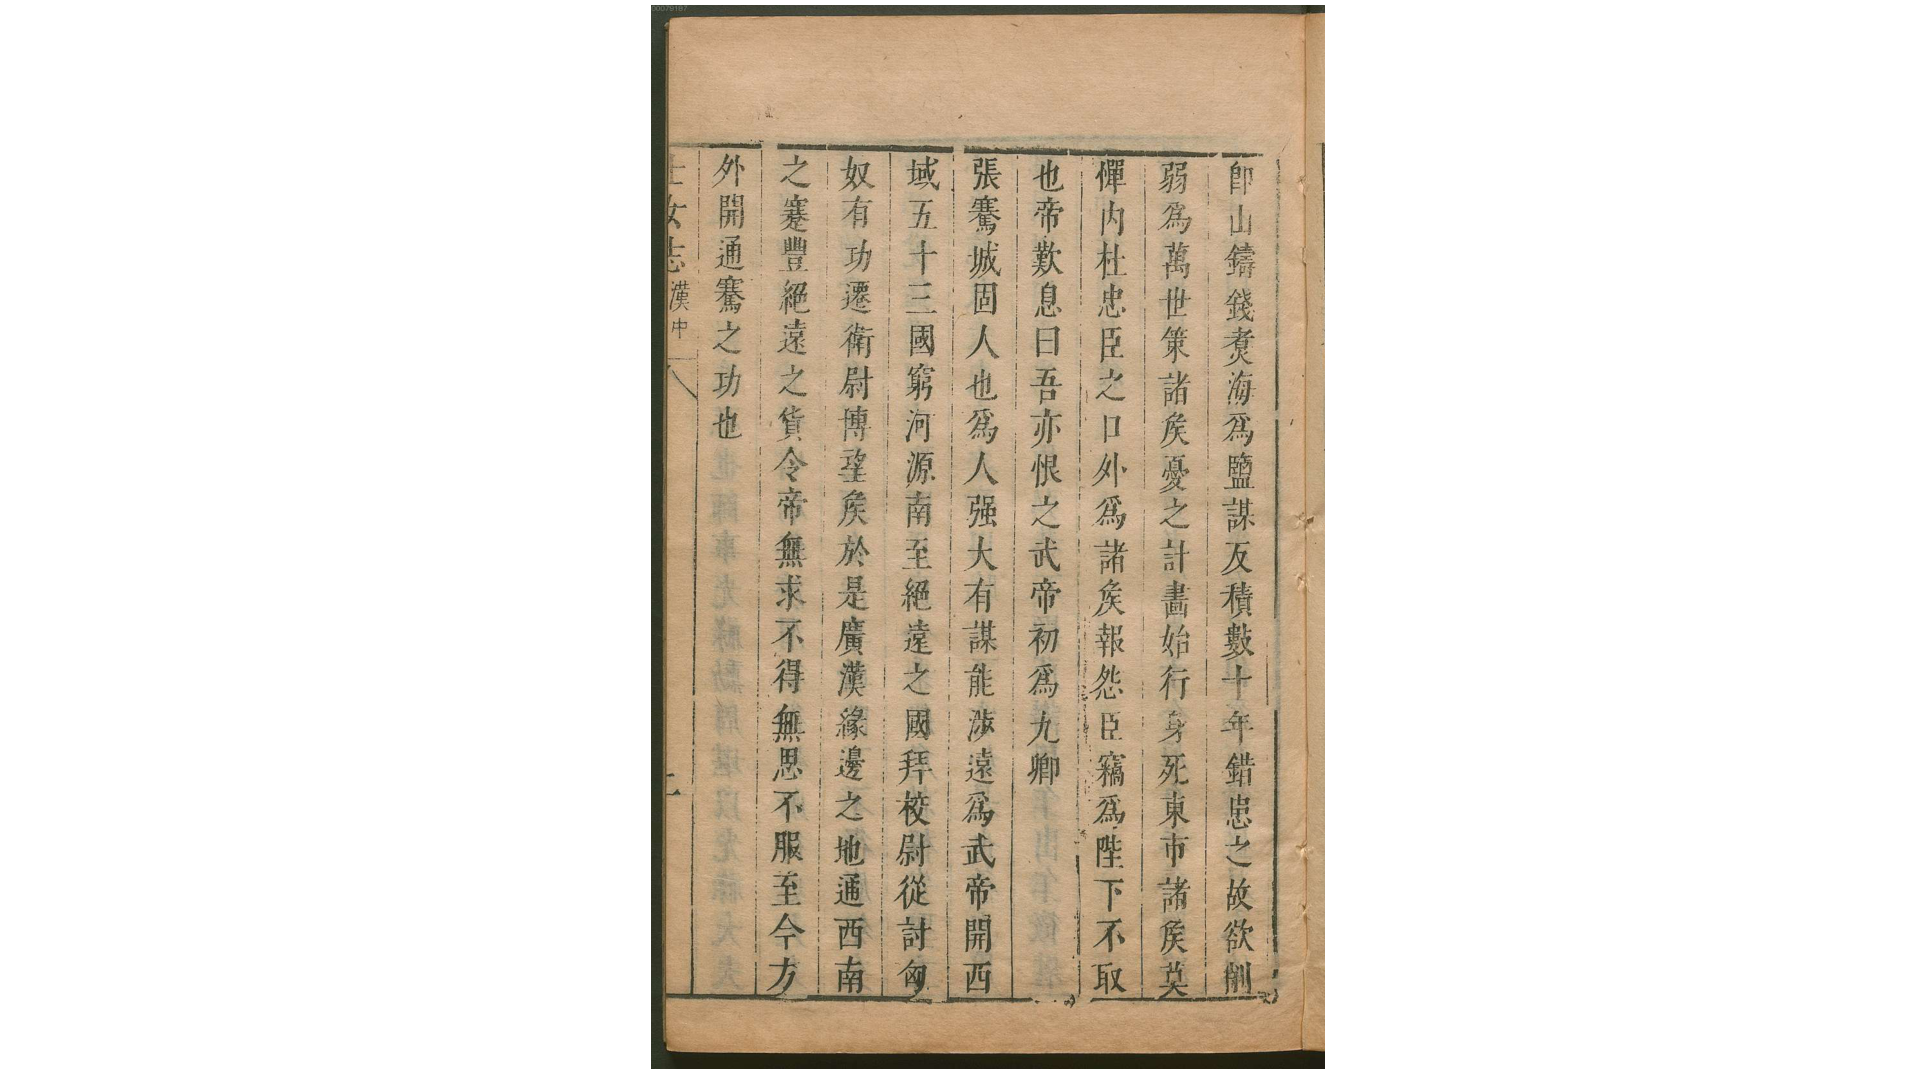 卽山鑄錢煑海爲鹽謀反積數十年錯患之故欲削
弱爲萬世策諸矦憂之計畵始行身死東市諸矦莫
憚內杜忠臣之口外爲諸矦報怨臣竊爲陛下不取
也帝歎息曰吾亦恨之武帝初爲九卿
張騫城固人也爲人强大有謀能涉遠爲武帝開西
域五十三國窮河源南至絕遠之國拜校尉從討匈
奴有功遷衛尉博望矦於是廣漢緣邊之地通西南
之塞豐絕遠之貨令帝無求不得無思不服至今方
外開通騫之功也
士女志 漢中 二